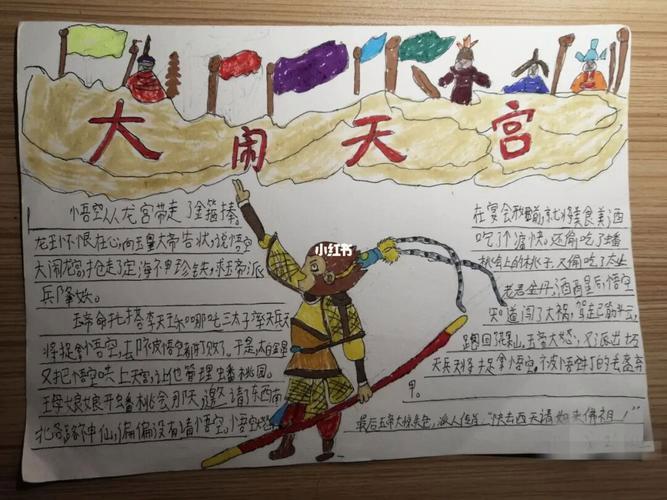 大闹天宫
小红书
悟空从龙宫带走了金箍棒,
龙王怀恨在心,向玉皇大帝告状,说悟空
大闹龙宫,抢走了定海神珍铁,求玉帝派
兵降妖。
玉帝命托塔李天王和哪吒三太子率天兵天
将捉拿悟空,去 被悟空 败了。于是,太白金星
又把悟空哄上天宫,让他管理蟠桃园。
王母娘娘开蟠桃会那天,邀请了东西南
北各路神仙,偏偏没有请悟空,悟空
在宴会 就将美食美酒
吃了个痛快,还偷吃了蟠
桃会上的桃子,又偷吃了太上
老君金丹,酒 后,悟空
知道闯了大祸,驾起筋斗云,
跑回花果山,玉帝大怒,又派出
天兵天将捉拿悟空,被悟空打的丢盔弃
甲。
最后玉帝大惊失色,派人传 :“快去西天请如来佛祖!”